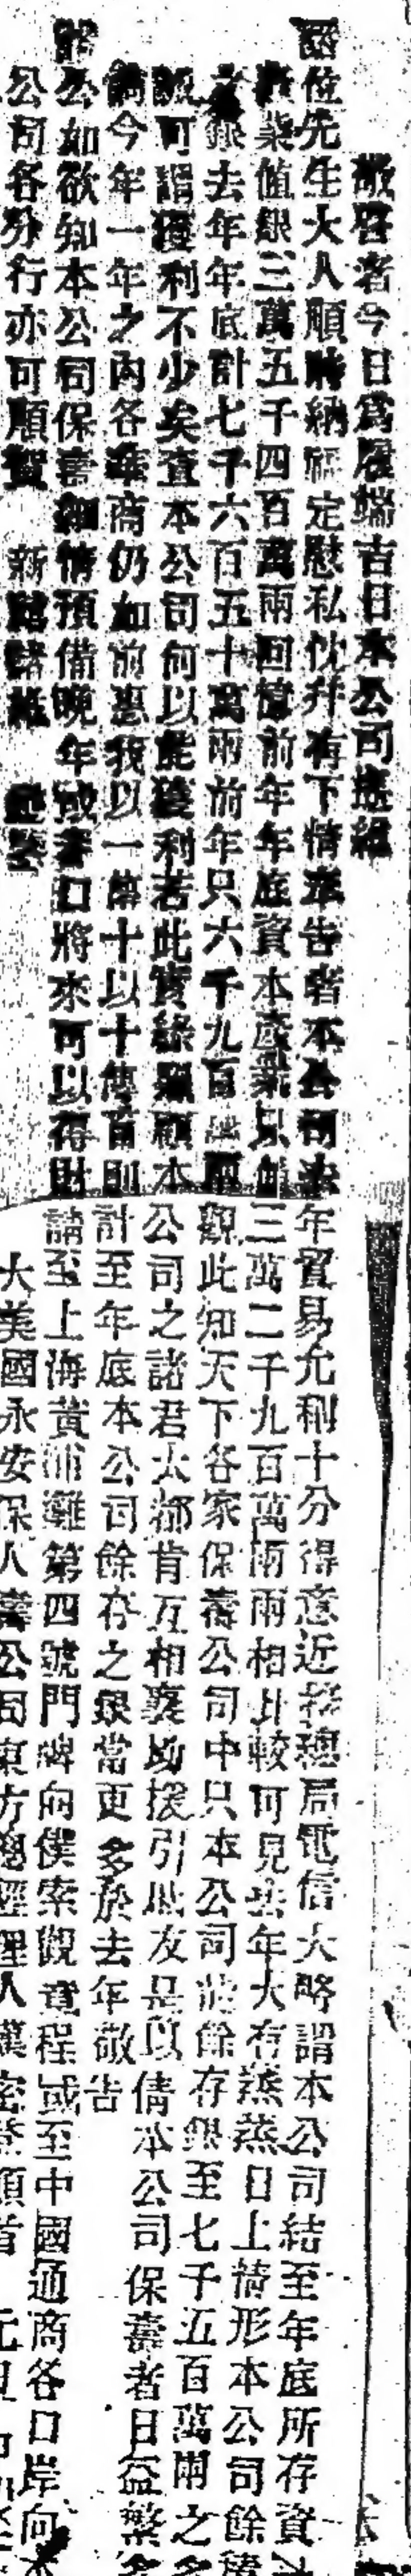 敬啓者今日爲履端吉日本公司總經
位先生大人順時納福定慰私忱幷有下情奉告者本公司去年貿易尤利十分得意近接總局電信大略謂本公司結至年底所存資
業値銀三萬五千四百萬兩回憶前年年底資本產業只值三萬二千九百萬兩兩相比較可見去年大有蒸蒸日上情形本公司餘積
銀去年年底計七千六百五十萬兩前年只六千九百萬兩觀此知天下各家保壽公司中只本公司能餘存銀至七千五百萬兩之多
可謂獲利不少矣查本公司何以能獲利若此實緣賜顧本公司之諸君大都肯互相襄助援引戚友是以倩本公司保壽者日益繁多
今年一年之內各華商仍如前惠我以一傳十以十傳百則計至年底本公司餘存之銀當更多於去年敬告
諸公如欲知本公司保壽細情預備晚年或妻口將來可以得財請至上海黃浦灘第四號門牌向僕索觀章程或至中國通商各口岸向本
公司各分行亦可順賀 新禧諸維 鑒 大美國永安保人壽公司東方總經理人 頓首 元旦